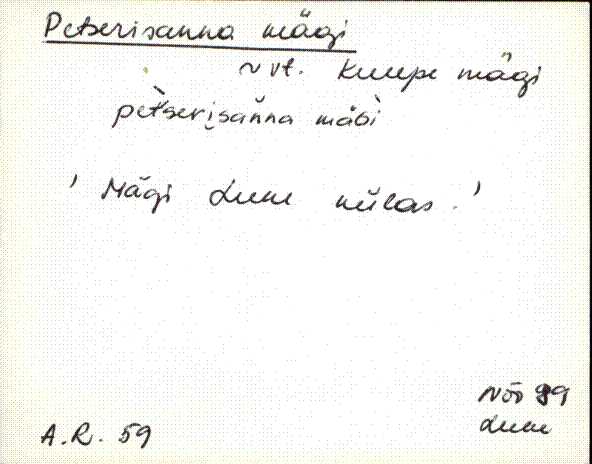 Petserisanna mägi
~ vt. Kuupe mägi
pètserisanna mäGì
' Mägi Luue külas. '
Nõo 89
Luue
A.R. 59